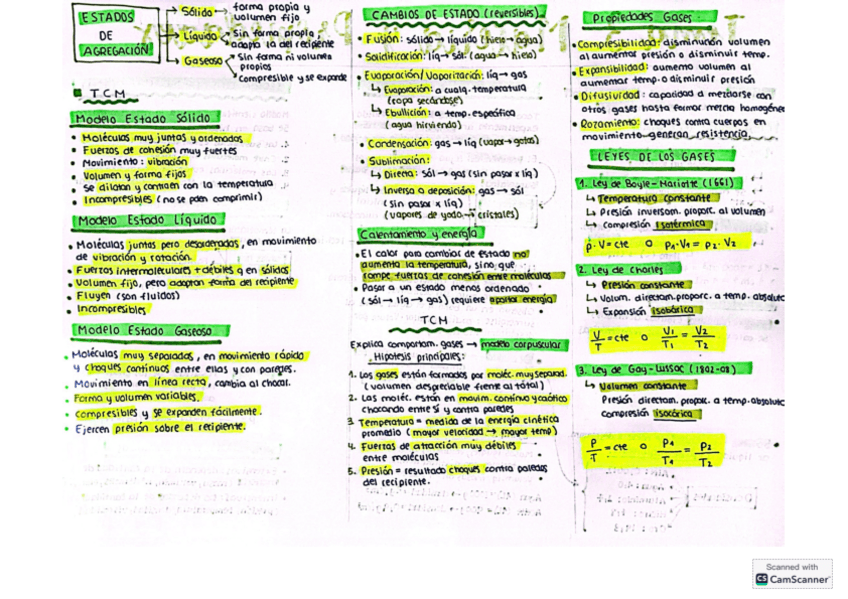 ESTADOS
DE
AGREGACIÓN
Sólido → forma propia y
volumen fijo
Líquido → Sin forma propia,
adapta la del recipiente
Gaseoso → Sin forma ni volumen
propios
Compresible y se expande
TCM
Modelo Estado Sólido
• Moléculas muy juntas y ordenadas
• Fuerzas de cohesión muy fuertes
• Movimiento: vibración
• Volumen y forma fijos
• Se dilatan y contraen con la temperatura
• Incompresibles (no se pden comprimir)
Modelo Estado Líquido
• Moléculas juntas pero desordenadas, en movimiento
de vibración y rotación.
• Fuerzas intermoleculares + débiles q en sólidos
• Volumen fijo, pero adaptan forma del recipiente
• Fluyen (son fluidos)
• Incompresibles
Modelo Estado Gaseoso
• Moléculas muy separadas, en movimiento rápido
y choques continuos entre ellas y con paredes.
• Movimiento en línea recta, cambia al chocar.
• Forma y volumen variables.
• Compresibles y se expanden fácilmente.
• Ejercen presión sobre el recipiente.
CAMBIOS DE ESTADO (reversibles)
• Fusión: sólido → líquido (hielo → agua)
• Solidificación: líq → sól. (agua → hielo)
• Evaporación/Vaporización: líq → gas
↳ Evaporación: a cualq. temperatura
(ropa secándose)
↳ Ebullición: a temp. específica
(agua hirviendo)
• Condensación: gas → líq (vapor → gotas)
• Sublimación:
↳ Directa: sól → gas (sin pasar x líq)
↳ Inversa o deposición: gas → sól
(sin pasar x líq)
(vapores de yodo → cristales)
Calentamiento y energía
• El calor para cambios de estado no
aumenta la temperatura, sino que
rompe fuerzas de cohesión entre moléculas
• Pasar a un estado menos ordenado
(sól → líq → gas) requiere aportar energía
TCM
Explica comportam. gases → modelo corpuscular
Hipótesis principales:
1. Los gases están formados por moléc. muy separad.
(volumen despreciable frente al total)
2. Las moléc. están en movim. continuo y caótico
chocando entre sí y contra paredes
3. Temperatura = medida de la energía cinética
promedio (mayor velocidad → mayor temp)
4. Fuerzas de atracción muy débiles
entre moléculas
5. Presión = resultado choques contra paredes
del recipiente.
Propiedades Gases:
• Compresibilidad: disminución volumen
al aumentar presión o disminuir temp.
• Expansibilidad: aumento volumen al
aumentar temp. o disminuir presión
• Difusividad: capacidad a mezclarse con
otros gases hasta formar mezcla homogénea
• Rozamiento: choques contra cuerpos en
movimiento generan resistencia
LEYES DE LOS GASES
1. Ley de Boyle-Mariotte (1661)
↳ Temperatura constante
↳ Presión inversam. proporc. al volumen
↳ Compresión isotérmica
P · V = cte o P₁ · V₁ = P₂ · V₂
2. Ley de Charles
↳ Presión constante
↳ Volum. directam. proporc. a temp. absoluta
↳ Expansión isobárica
V/T = cte o V₁/T₁ = V₂/T₂
3. Ley de Gay-Lussac (1802-08)
↳ Volumen constante
Presión directam. propoc. a temp. absoluta
Compresión isocórica
P/T = cte o P₁/T₁ = P₂/T₂
Scanned with
CS CamScanner